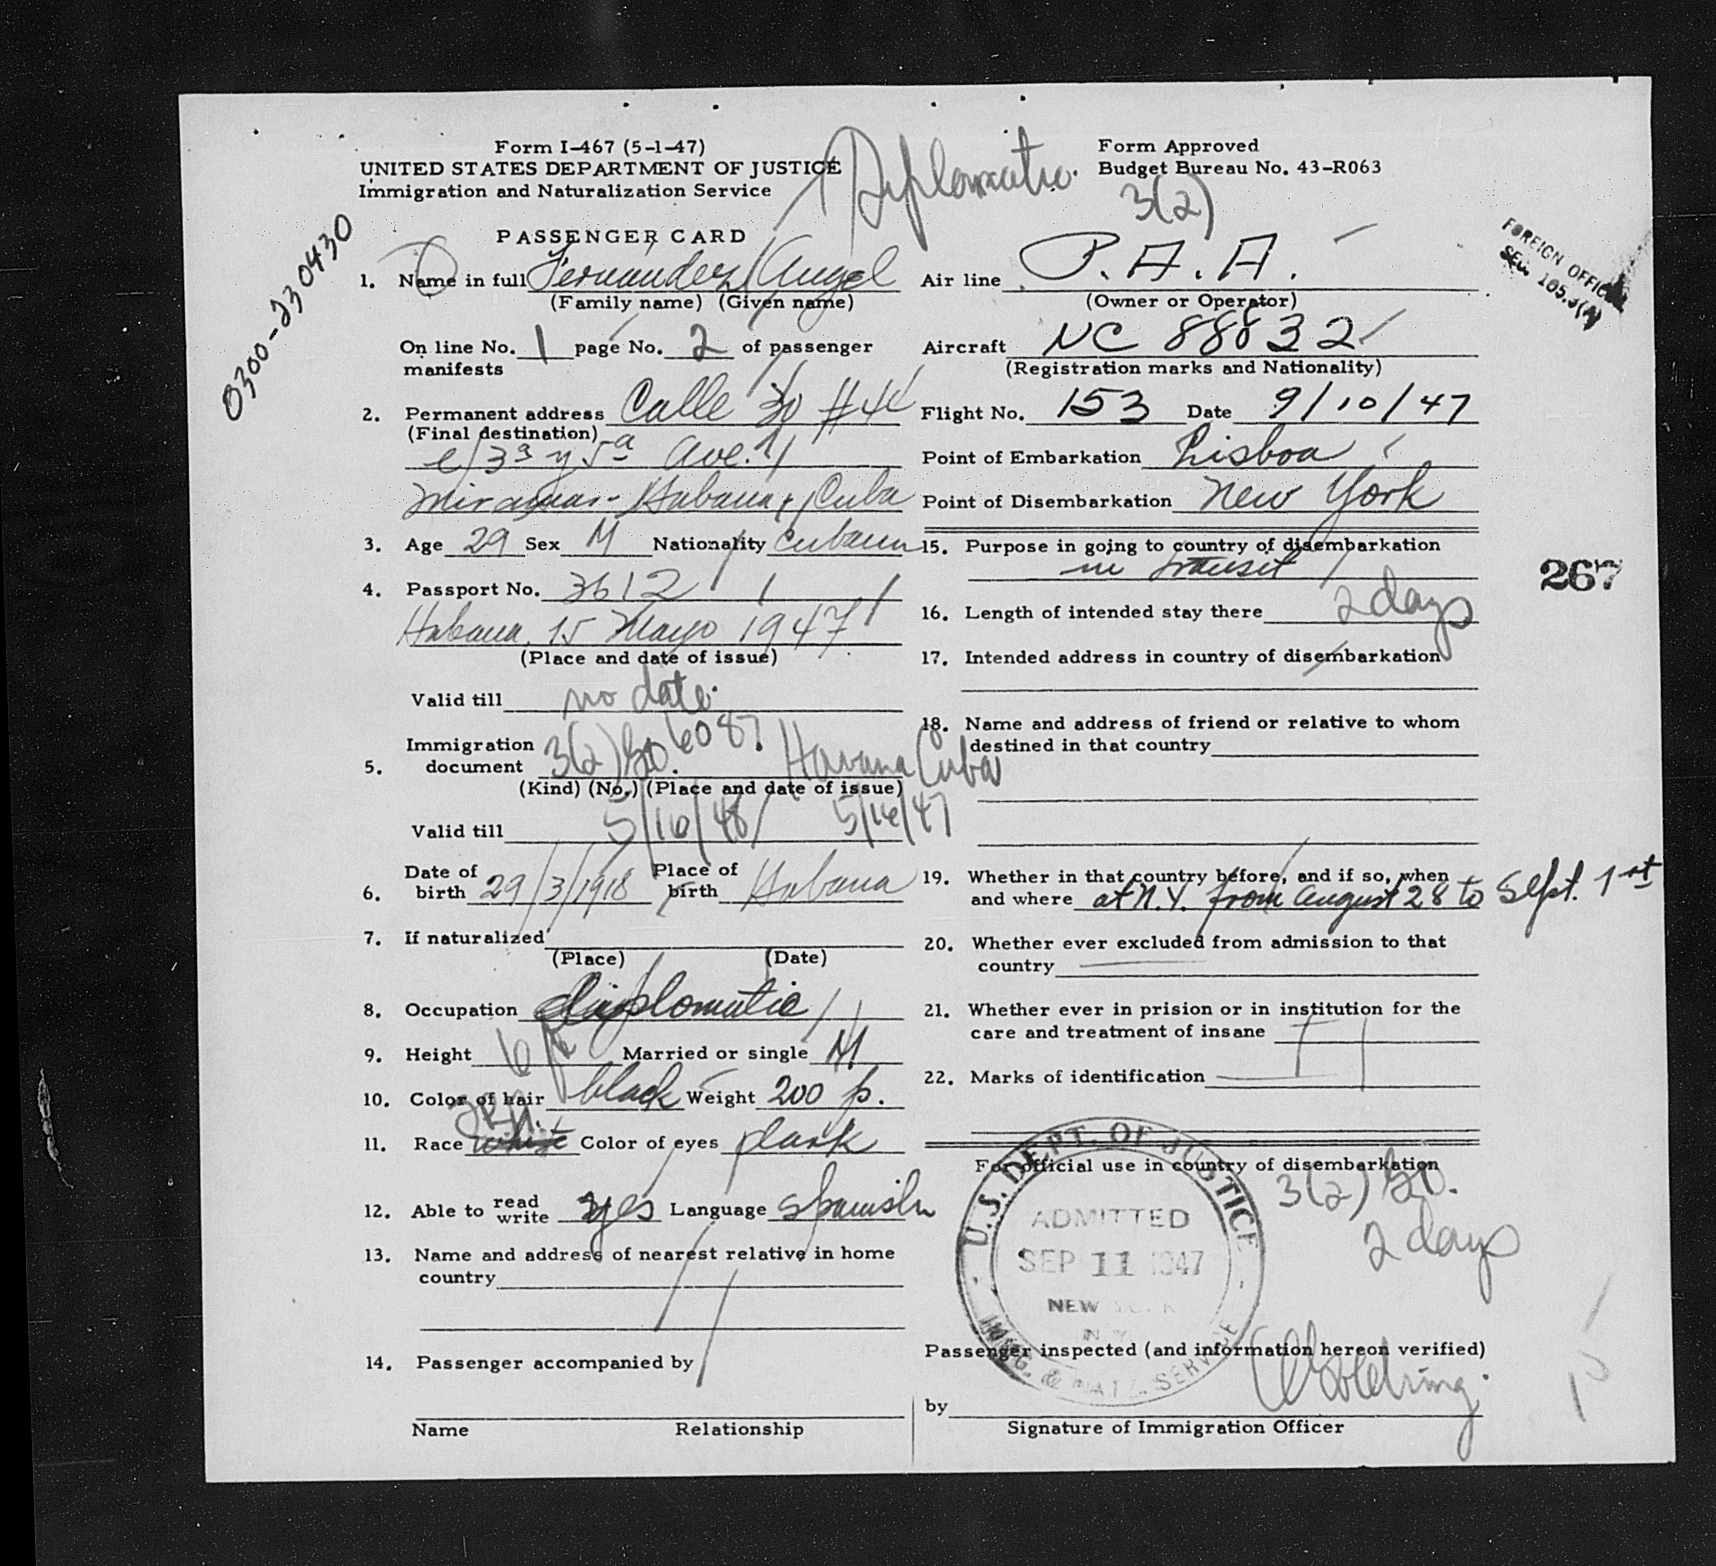 Form I-467 (5-1-47)
UNITED STATES DEPARTMENT OF JUSTICE
Immigration and Naturalization Service
Diplomatic.
Form Approved
Budget Bureau No. 43-R063
3(2)
0300-230430
FOREIGN OFFICIAL
SEC.
PASSENGER CARD
1. Name in full Fernández Angel
(Family name) (Given name)
On line No. 1 page No. 2 of passenger
manifests
2. Permanent address Calle 30 #44
(Final destination)
e/3ª y 5ª Ave.
Miramar - Habana, Cuba
3. Age 29 Sex M Nationality Cuban
4. Passport No. 3612
Habana, 15 Mayo 1947
(Place and date of issue)
Valid till no date.
5. Immigration
document 3(2) 6087 Havana Cuba
(Kind) (No.) (Place and date of issue)
Valid till 5/16/48 5/16/47
6. Date of
birth 29/3/1918 Place of
birth Habana
7. If naturalized
(Place) (Date)
8. Occupation diplomatic
9. Height 6 ft Married or single M
10. Color of hair black Weight 200 p.
11. Race white Color of eyes dark
12. Able to read
write yes Language Spanish
13. Name and address of nearest relative in home
country
14. Passenger accompanied by
Name Relationship
Air line P.A.A.
(Owner or Operator)
Aircraft NC 88832
(Registration marks and Nationality)
Flight No. 153 Date 9/10/47
Point of Embarkation Lisboa
Point of Disembarkation New York
15. Purpose in going to country of disembarkation
in transit
267
16. Length of intended stay there 2 days
17. Intended address in country of disembarkation
18. Name and address of friend or relative to whom
destined in that country
19. Whether in that country before, and if so, when
and where at N.Y. from August 28 to Sept. 1st
20. Whether ever excluded from admission to that
country
21. Whether ever in prision or in institution for the
care and treatment of insane
22. Marks of identification
For official use in country of disembarkation
3(2)
2 days
U.S. DEPT. OF JUSTICE
ADMITTED
SEP 11 1947
NEW YORK
N.Y.
IMMIG. & NATZ. SERVICE
Passenger inspected (and information hereon verified)
by
Signature of Immigration Officer